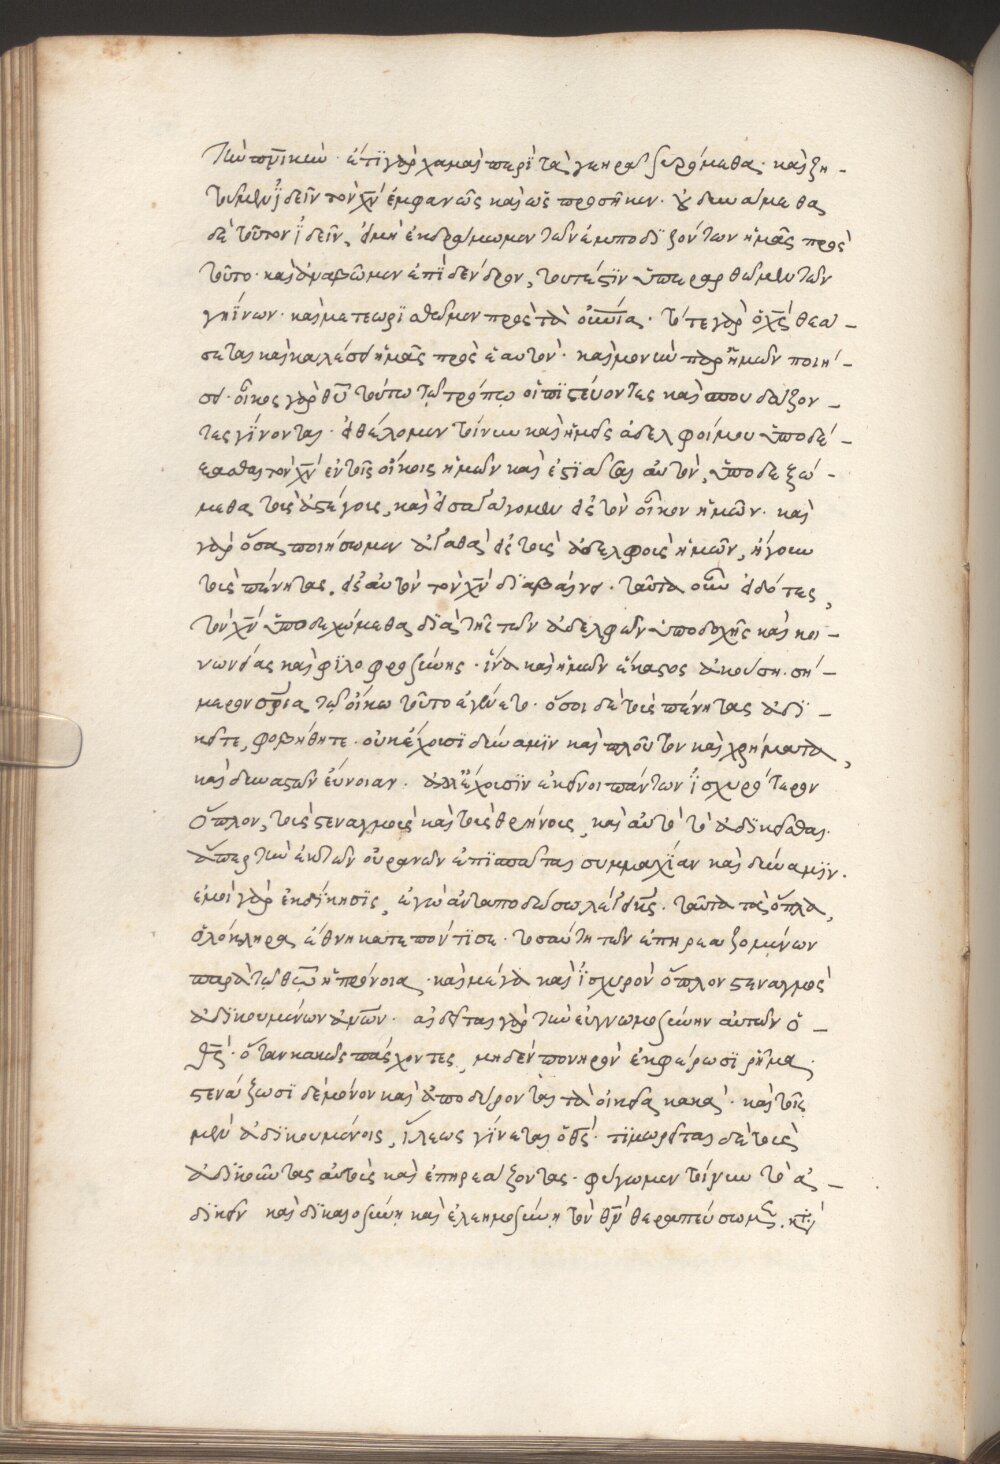 τὴν πνικὴν· ἔτι γὰρ χαμαὶ περὶ τὰ γεηρὰ συρόμεθα· καὶ ζη-
τοῦμεν ἰδεῖν τὸν χν ἐμφανῶς καὶ ὡς προσῆκεν. οὐ δυνάμεθα
δὲ τοῦτον ἰδεῖν, εἰ μὴ ἐκδράμωμεν τῶν ἐμποδιζόντων ἡμᾶς πρὸς
τοῦτο· καὶ ἀναβῶμεν ἐπὶ δένδρον, τουτέστιν ὑπεραρθῶμεν τῶν
γηΐνων· καὶ μετεωρισθῶμεν πρὸς τὰ οὐνία. τότε γὰρ ὁ χς θεά-
σεται καὶ καλέσει ἡμᾶς πρὸς ἑαυτόν· καὶ μονὴν παρ' ἡμῶν ποιή-
σει. οἶκος γὰρ θυ τούτω τῷ τρόπῳ οἱ πιστεύοντες καὶ σπουδάζον-
τες γίνονται. εἰ θέλομεν τοίνυν καὶ ἡμεῖς ἀδελφοί μου ὑποδέ-
ξασθαι τὸν χν ἐν τοῖς οἴκοις ἡμῶν καὶ ἑστιᾶσαι αὐτὸν, ὑποδεξώ-
μεθα τοὺς ἀστέγους, καὶ εἰσαγάγομεν εἰς τὸν οἶκον ἡμῶν. καὶ
γὰρ ὅσα ποιήσωμεν ἀγαθὰ εἰς τοὺς ἀδελφοὺς ἡμῶν, ἤγουν
τοὺς πένητας, εἰς αὐτὸν τὸν χν διαβαίνει. ταῦτα οὖν εἰδότες,
τὸν χν ὑποδεχώμεθα διὰ τῆς τῶν ἀδελφῶν ὑποδοχῆς καὶ κοι-
νωνίας καὶ φιλοφροσύνης. ἵνα καὶ ἡμῶν ἕκαστος ἀκούση. σή-
μερον σρια τῷ οἴκω τοῦτο ἐγένετο· ὅσοι δὲ τοὺς πένητας ἀδι-
κεῖτε, φοβήθητε· οὐκ ἔχουσι δύναμιν καὶ πλοῦτον καὶ χρήματα,
καὶ δυναστῶν εὔνοιαν. ἀλλ' ἔχουσιν ἐκεῖνοι πάντων ἰσχυρότερον
ὅπλον, τοὺς στεναγμοὺς καὶ τοὺς θρήνους, καὶ αὐτὸ τὸ ἀδικεῖσθαι.
ἅπερ τὴν ἐκ τῶν οὐρανῶν ἐπισπᾶται συμμαχίαν καὶ δύναμιν.
ἐμοὶ γὰρ ἐκδίκησις, ἐγὼ ἀνταποδώσω λέγει κς. ταῦτα τὰ ὅπλα,
ὁλόκληρα ἔθνη κατεπόντισε. τοσαύτη τῶν ἐπηρεαζομένων
παρὰ τῷ θεῷ ἡ πρόνοια· καὶ μέγα καὶ ἰσχυρὸν ὅπλον στεναγμὸς
ἀδικουμένων ἀνων. αἰδεῖται γὰρ τὴν εὐγνωμοσύνην αὐτῶν ὁ
θς. ὅταν κακῶς πάσχοντες, μηδὲν πονηρὸν ἐκφέρωσι ρῆμα.
στενάξωσι δὲ μόνον καὶ ἀποδύρονται τὰ οἰκεῖα κακά. καὶ τοῖς
μὲν ἀδικουμένοις, ἵλεως γίνεται ὁ θς. τιμωρεῖται δὲ τοὺς
ἀδικοῦντας αὐτοὺς καὶ ἐπηρεάζοντας. φύγωμεν τοίνυν τὸ ἀ-
δικεῖν καὶ δικαιοσύνη καὶ ἐλεημοσύνη τὸν θν θεραπεύσωμεν.